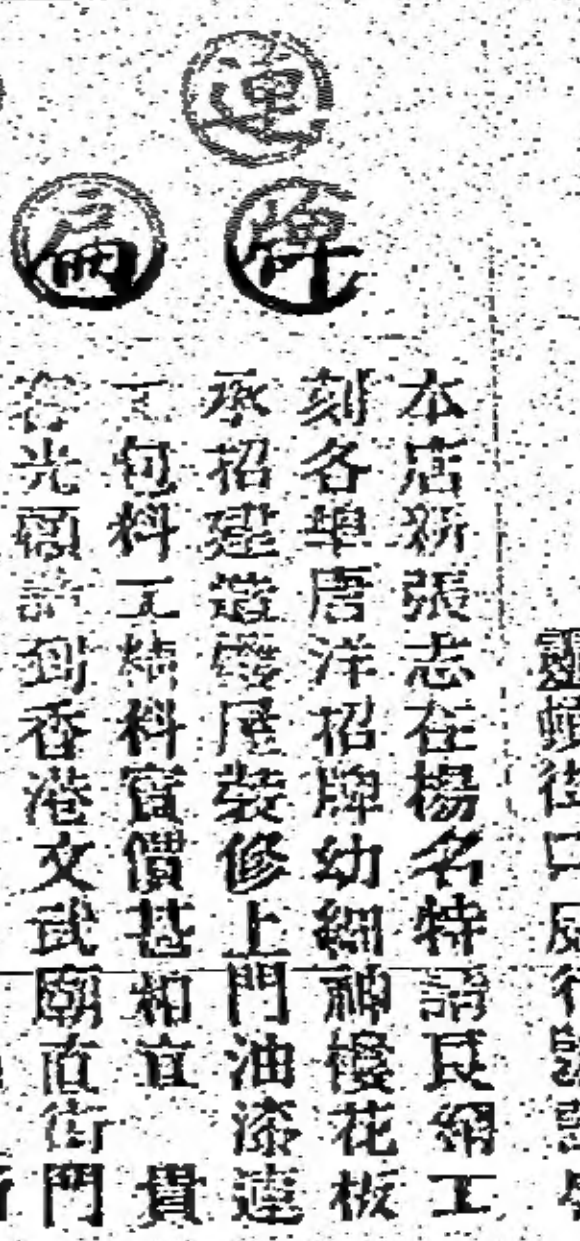 連
牌
扁
本店新張志在楊名特請良細工
刻各埠唐洋招牌幼細神樓花板
承招建造屋裝修上門油漆連
工包料工精料實價甚相宜 貴
客光顧請到香港文武廟直街門
街口